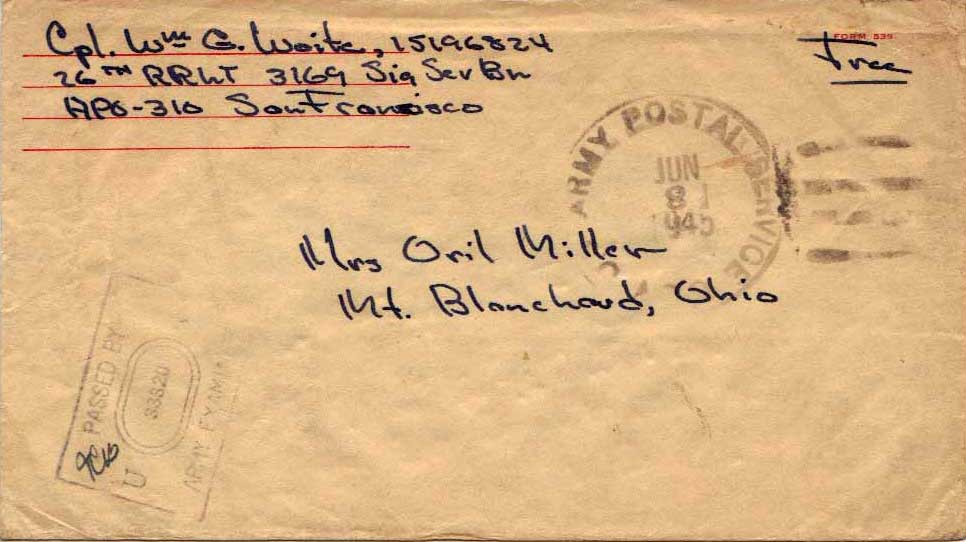 Cpl. Wm G. Waite, 15196824
26TH RRLT 3169 Sig Ser Bn
APO-310 San Francisco
FORM 539
Free
ARMY POSTAL SERVICE
JUN
1945
Mrs Oril Miller
Mt. Blanchard, Ohio
PASSED BY
33820
U
ARMY EXAMI